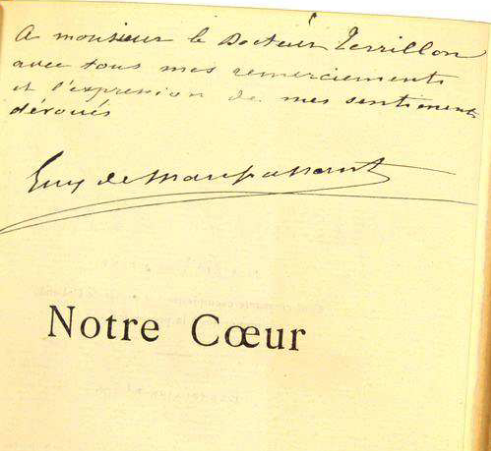 A monsieur le Docteur Terrillon
avec tous mes remerciements
et l'expression de mes sentiments
dévoués
Guy de Maupassant
Notre Cœur